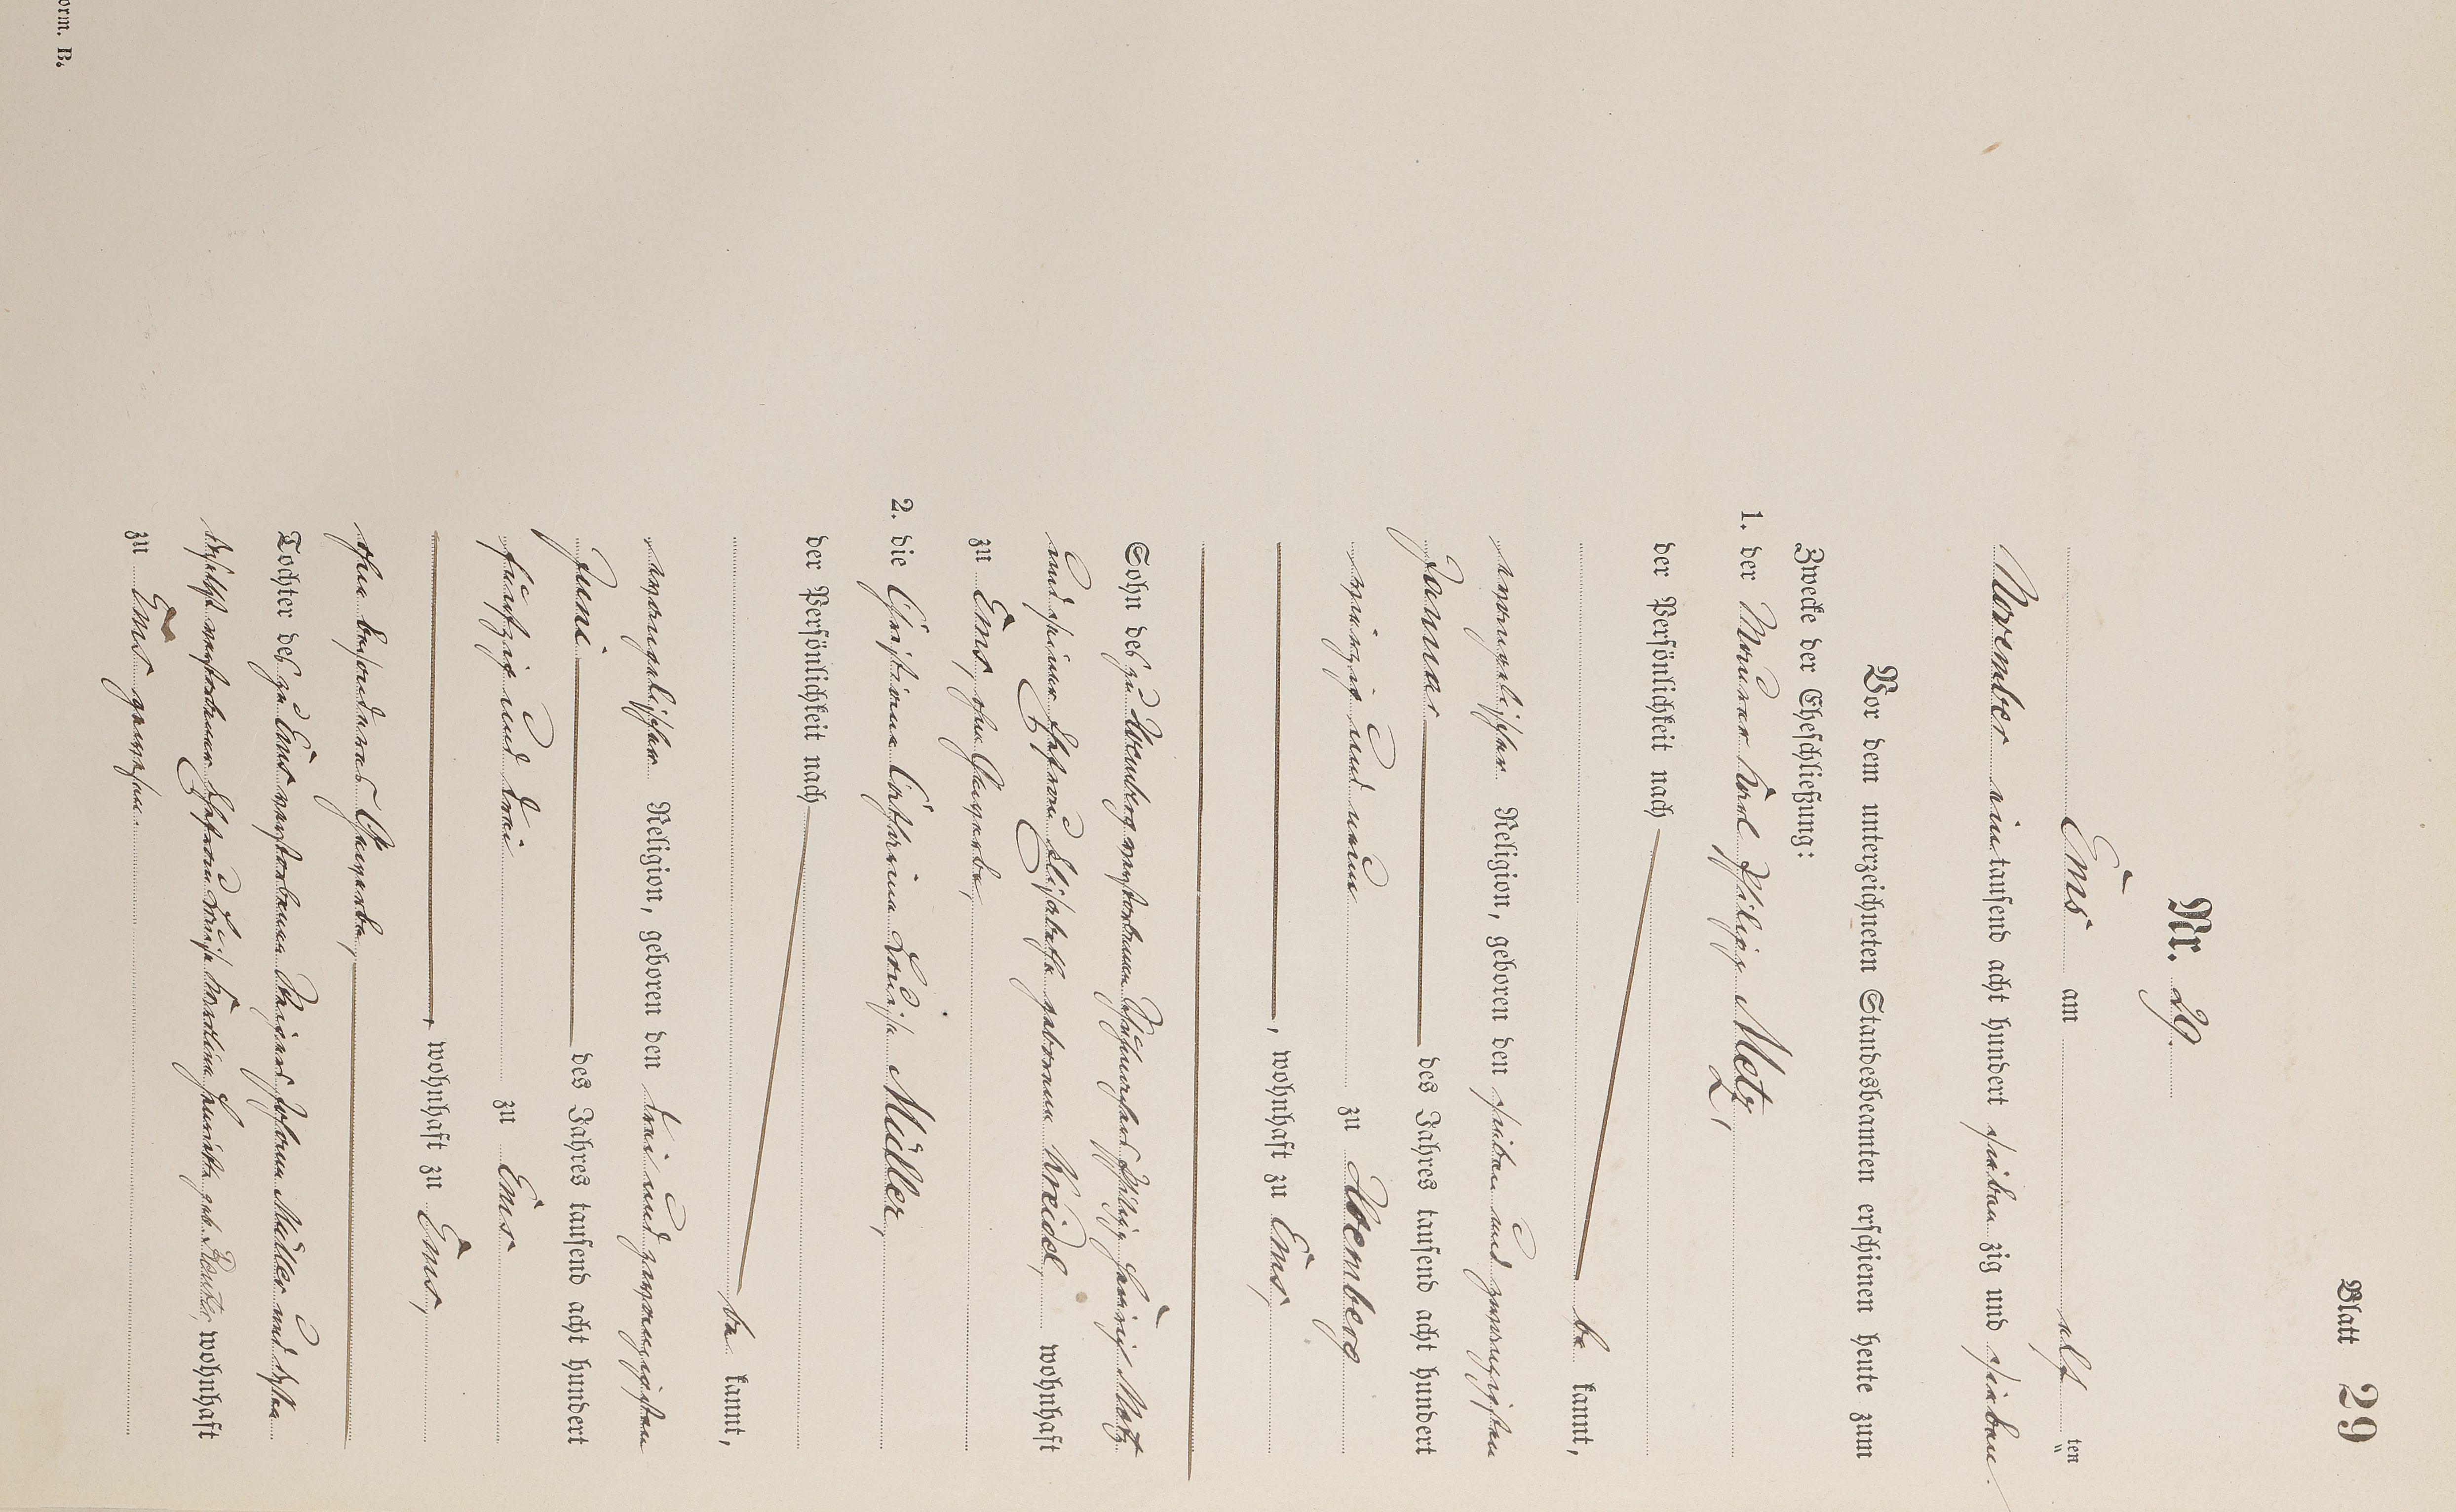 Blatt 29
Nr. 29.
Ems am elf ten
November ein tausend acht hundert sieben zig und sieben.
Vor dem unterzeichneten Standesbeamten erschienen heute zum
Zwecke der Eheschließung:
1. der Maurer Karl Philipp Metz,
der Persönlichkeit nach
be kannt,
evangelischer Religion, geboren den sieben und zwanzigsten
Januar des Jahres tausend acht hundert
vierzig und neun zu
, wohnhaft zu Ems,
Sohn des zu verstorbenen Philipp Heinrich Metz
und seiner Ehefrau Elisabethe geborenen Kreidel, wohnhaft
zu Ems, ohne Gewerbe,
2. die Christiane Cathrine Louise Müller,
der Persönlichkeit nach
be kannt,
evangelischer Religion, geboren den drei und zwanzigsten
Juni des Jahres tausend acht hundert
fünfzig und drei zu Ems
, wohnhaft zu Ems,
ohne besonderes Gewerbe,
Tochter des zu Ems verstorbenen Johann Müller und dessen
daselbst verstorbener Ehefrau Louise geb. wohnhaft
zu Ems gewesen.
orm. B.